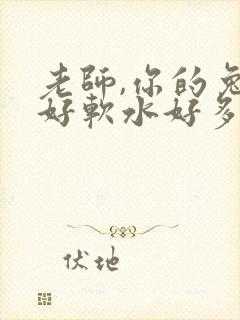 老師,你的兔
好軟水好多
伏地